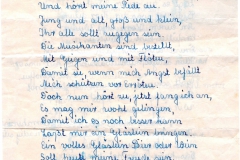 Und hört meine Rede an.
Jung und alt, groß und klein,
Ihr alle sollt zugegen sein
Die Musikanten sind bestellt,
Mit Geigen und mit Flöten,
Damit sie, wenn mich Angst befällt
Mich schützen vor Erröten.
Doch nun hört zu, jetzt fang ich an,
Es mag mir wohl gelingen,
Damit ich es noch besser kann
Laßt mir ein Gläslein bringen,
Ein volles Gläslein Bier oder Wein
Soll heut meine Freude sein